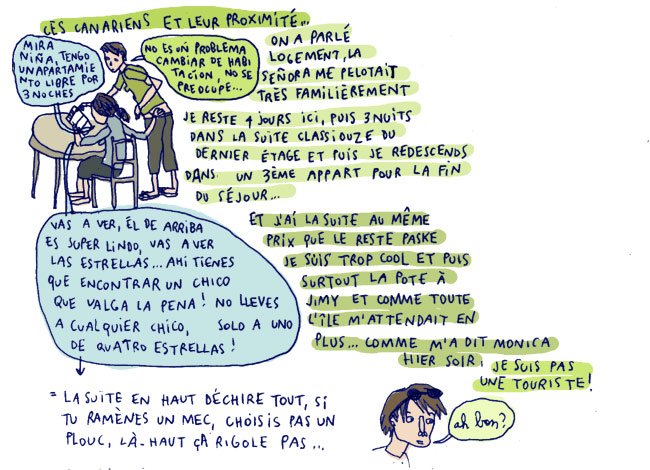 CES CANARIENS ET LEUR PROXIMITÉ...
MIRA
NIÑA, TENGO
UN APARTAMIE
NTO LIBRE POR
3 NOCHES
NO ES UN PROBLÈMA
CAMBIAR DE HABI
TACION, NO SE
PREOCUPÉ...
ON A PARLÉ
LOGEMENT, LA
SEÑORA ME PELOTAIT
TRÈS FAMILIÈREMENT
JE RESTE 4 JOURS ICI, PUIS 3 NUITS
DANS LA SUITE CLASSIOUZE DU
DERNIER ÉTAGE ET PUIS JE REDESCENDS
DANS UN 3ÈME APPART POUR LA FIN
DU SÉJOUR...
VAS A VER, ÉL DE ARRIBA
ES SUPER LINDO, VAS A VER
LAS ESTRELLAS... AHI TIENES
QUE ENCONTRAR UN CHICO
QUE VALGA LA PENA! NO LLEVES
A CUALQUIER CHICO, SOLO A UNO
DE QUATRO ESTRELLAS!
ET J'AI LA SUITE AU MÊME
PRIX QUE LE RESTE PASKE
JE SUIS TROP COOL ET PUIS
SURTOUT LA POTE À
JIMY ET COMME TOUTE
L'ÎLE M'ATTENDAIT EN
PLUS... COMME M'A DIT MONICA
HIER SOIR,
JE SUIS PAS
UNE TOURISTE!
= LA SUITE EN HAUT DÉCHIRE TOUT, SI
TU RAMÈNES UN MEC, CHOISIS PAS UN
PLOUC, LÀ-HAUT ÇA RIGOLE PAS...
ah bon?